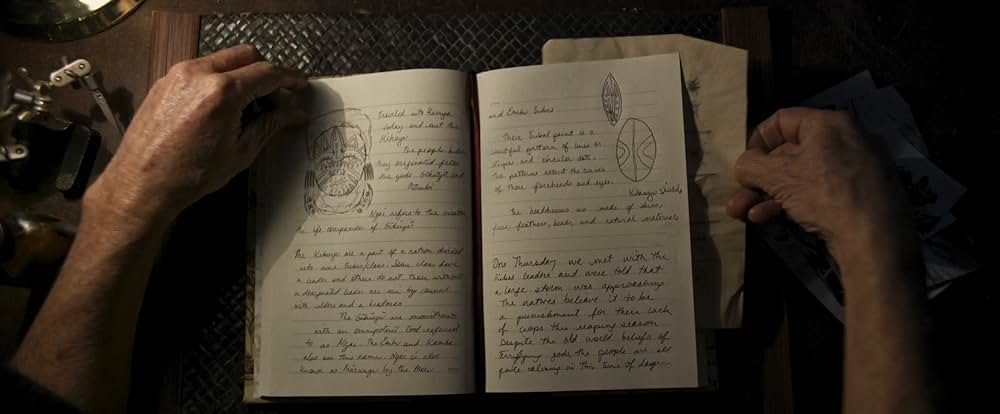 Traveled into Kenya
today and met the
Kikuyu
The people believe
they originated from
the gods, Gikuyu and
Mumbi
Ngai refers to the creator
the life companion of Gikuyu
The Kikuyu are a part of a nation divided
into nine tribes/clans. Some clans have
a leader and others do not. Those without
a designated leader are run by council
with elders and a headman
The Gikuyu are monotheists
with an omnipotent God referred
to as Ngai. The Embu and Kamba
also use this name. Ngai is also
known as Murungu by the Meru
and Embu tribes
Their Tribal paint is a
beautiful pattern of lines or
stripes and circular dots.
The patterns reflect the curves
of their foreheads and eyes.
Kikuyu shields
The headdresses are made of skins,
furs, feathers, beads and natural materials
One Thursday we met with the
tribes leaders and were told that
a large storm was approaching
The natives believe it to be
a punishment for their lack
of crops this reaping season
Despite the old world beliefs of
terrifying gods the people are
quite calming in this time of